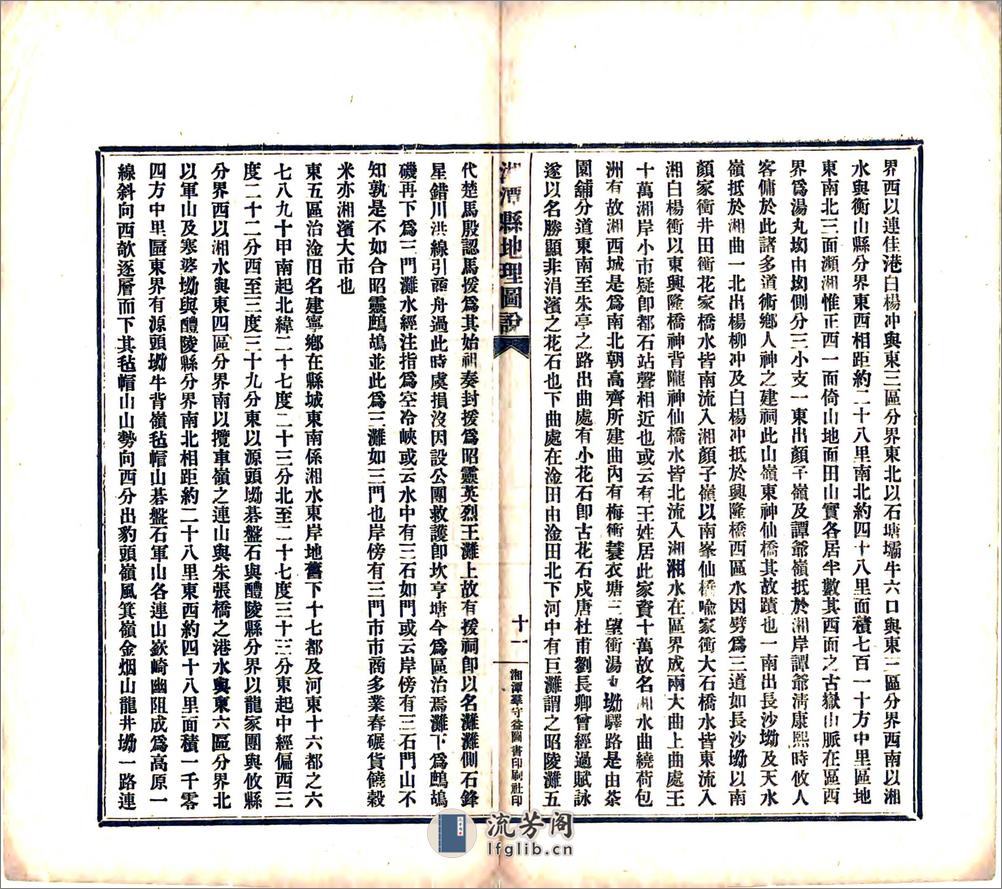 界西以連佳港白楊冲與東三區分界東北以石塘壩牛六口與東二區分界西南以湘
水與衡山縣分界東西相距約二十八里南北約四十八里面積七百一十方中里區地
東南北三面瀕湘惟正西一面倚山地面田山實各居半數其西面之古嶽山脈在區西
界爲湯丸坳由坳側分三小支一東出顏子嶺及譚爺嶺抵於湘岸譚爺淸康熙時攸人
客傭於此諸多道術鄉人神之建祠此山嶺東神仙橋其故蹟也一南出長沙坳及天水
嶺抵於湘曲一北出楊柳冲及白楊冲抵於興隆橋西區水因劈爲三道如長沙坳以南
顏家衝井田衝花家橋水皆南流入湘顏子嶺以南峯仙橋喩家衝大石橋水皆東流入
湘白楊衝以東興隆橋神背隴神仙橋水皆北流入湘湘水在區界成兩大曲上曲處王
十萬湘岸小市疑卽都石站聲相近也或云有王姓居此家資十萬故名湘水曲繞荷包
洲有故湘西城是為南北朝高齊所建曲內有梅衝蓑衣塘三望衝湯 坳驛路是由茶
園鋪分道東南至朱亭之路出曲處有小花石卽古花石戍唐杜甫劉長卿曾經過賦詠
遂以名勝顯非涓濱之花石也下曲處在淦田由淦田北下河中有巨灘謂之昭陵灘五
湘潭縣地理圖說
十一
湘潭羣守益圖書印刷社印
代楚馬殷認馬援爲其始祖奏封援爲昭靈英烈王灘上故有援祠卽以名灘灘側石鋒
星錯川洪線引商舟過此時虞損沒因設公團救護卽坎亨塘今爲區治焉灘下爲鷓鴣
磯再下爲三門灘水經注指爲空冷峽或云水中有三石如門或云岸傍有三石門山不
知孰是不如合昭靈鷓鴣並此爲三灘如三門也岸傍有三門市市商多業舂碾貨饒穀
米亦湘濱大市也
東五區治淦田名建寧鄉在縣城東南係湘水東岸地舊下十七都及河東十六都之六
七八九十甲南起北緯二十七度二十三分北至二十七度三十三分東起中經偏西三
度二十二分西至三度三十九分東以源頭坳碁盤石與醴陵縣分界以龍家團與攸縣
分界西以湘水與東四區分界南以攬車嶺之連山與朱張橋之港水與東六區分界北
以軍山及寒婆坳與醴陵縣分界南北相距約二十八里東西約四十八里面積一千零
四方中里區東界有源頭坳牛背嶺毡帽山碁盤石軍山各連山嶔崎幽阻成爲高原一
線斜向西欹逐層而下其毡帽山山勢向西分出豹頭嶺風箕嶺金烟山龍井坳一路連
流芳阁
lfglib.cn